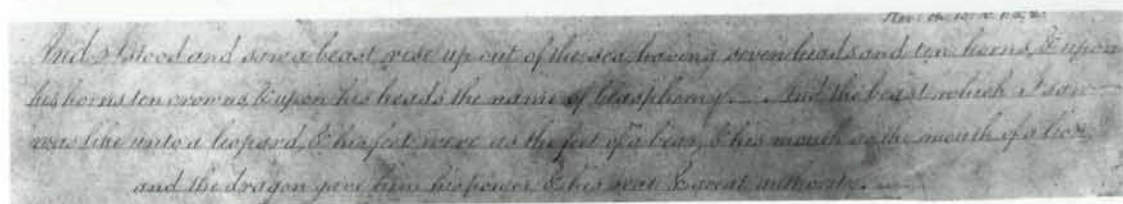 Rev: ch. 13. v. 1 & 2.
And I stood and saw a beast rise up out of the sea, having seven heads and ten horns, & upon
his horns ten crowns, & upon his heads the name of blasphemy. And the beast which I saw
was like unto a leopard, & his feet were as the feet of a bear, & his mouth as the mouth of a lion,
and the dragon gave him his power & his seat & great authority.